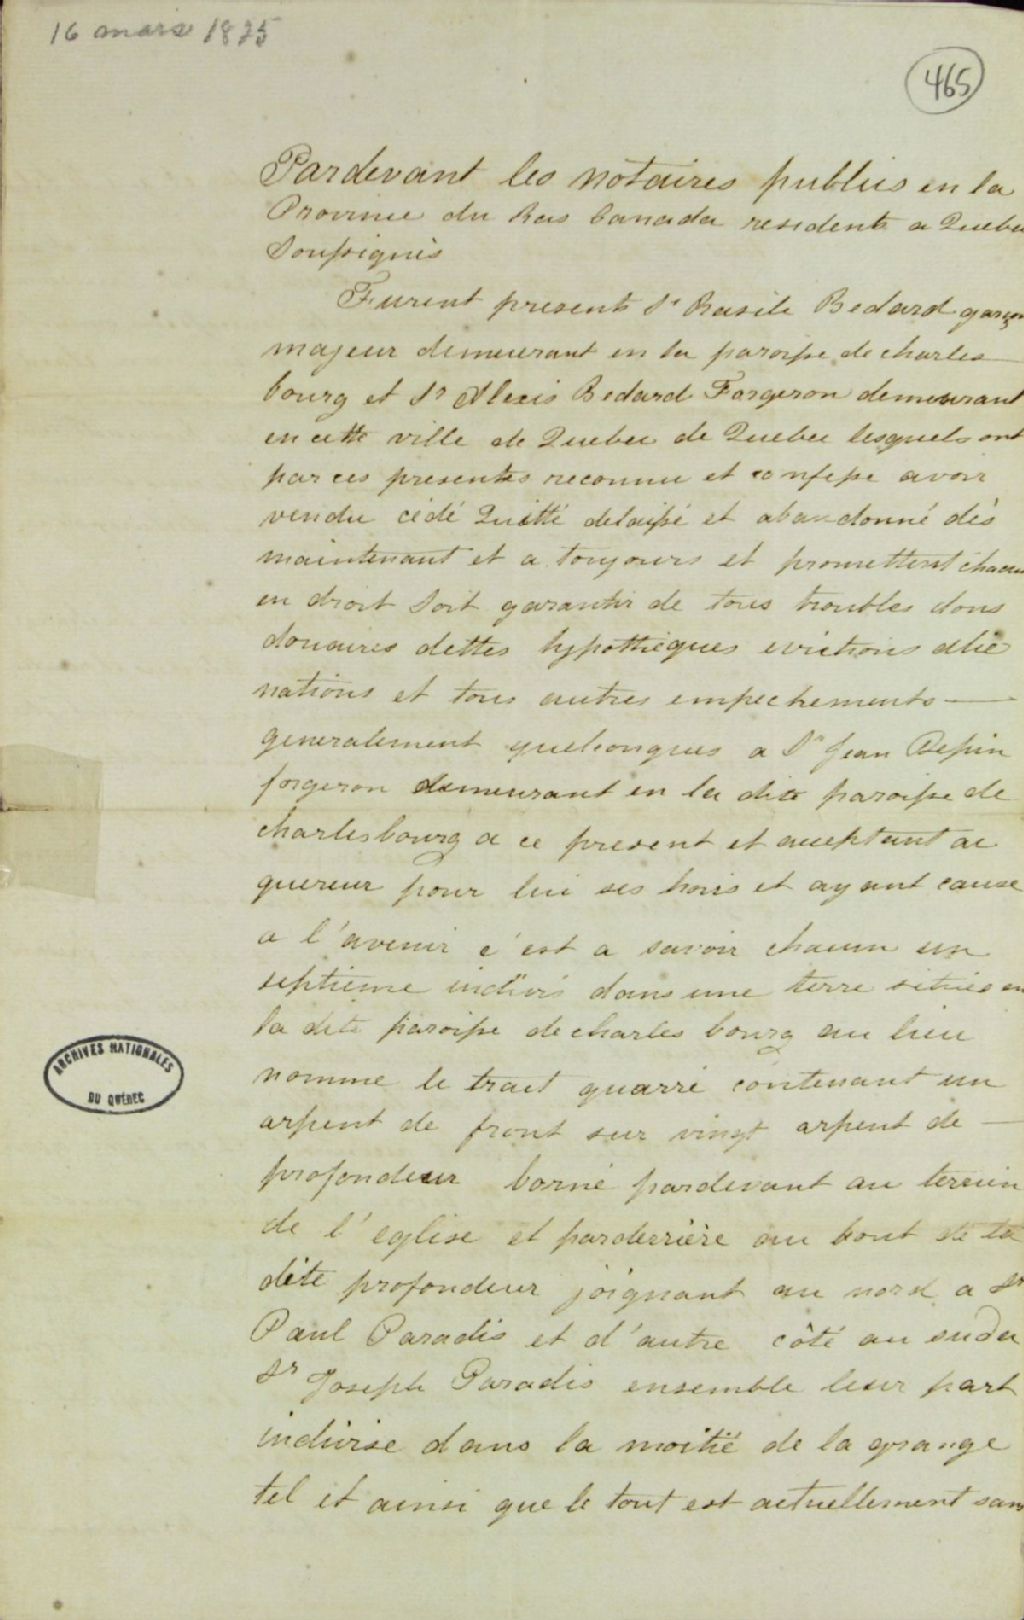 16 mars 1825
465
Pardevant les notaires publics en la
Province du Bas Canada residents a Quebec
Soussignés
Furent presents Sr Basile Bedard garçon
majeur demeurant en la paroisse de charles
bourg et Sr Alexis Bedard Forgeron demeurant
en cette ville de Quebec de Quebec lesquels ont
par ces presentes reconnu et confesse avoir
vendu cédé Quitté delaissé et abandonné dès
maintenant et a toujours et promettent chacun
en droit soit garantir de tous troubles dons
douaires dettes hypothèques evictions alié
nations et tous autres empechements
generalement quelconques a Sr Jean Pepin
forgeron demeurant en la dite paroisse de
charlesbourg a ce present et acceptant ac
quereur pour lui ses hoirs et ayant cause
a l'avenir c'est a savoir chacun un
septieme indivis dans une terre située en
la dite paroisse de charles bourg au lieu
nomme le trait quarré contenant un
arpent de front sur vingt arpent de
profondeur borné pardevant au terrein
de l'eglise et parderrière au bout de la
dite profondeur joignant au nord a Sr
Paul Paradis et d'autre côté au sud a
Sr Joseph Paradis ensemble leur part
indivise dans la moitié de la grange
tel et ainsi que le tout est actuellement sans
ARCHIVES NATIONALES
DU QUÉBEC